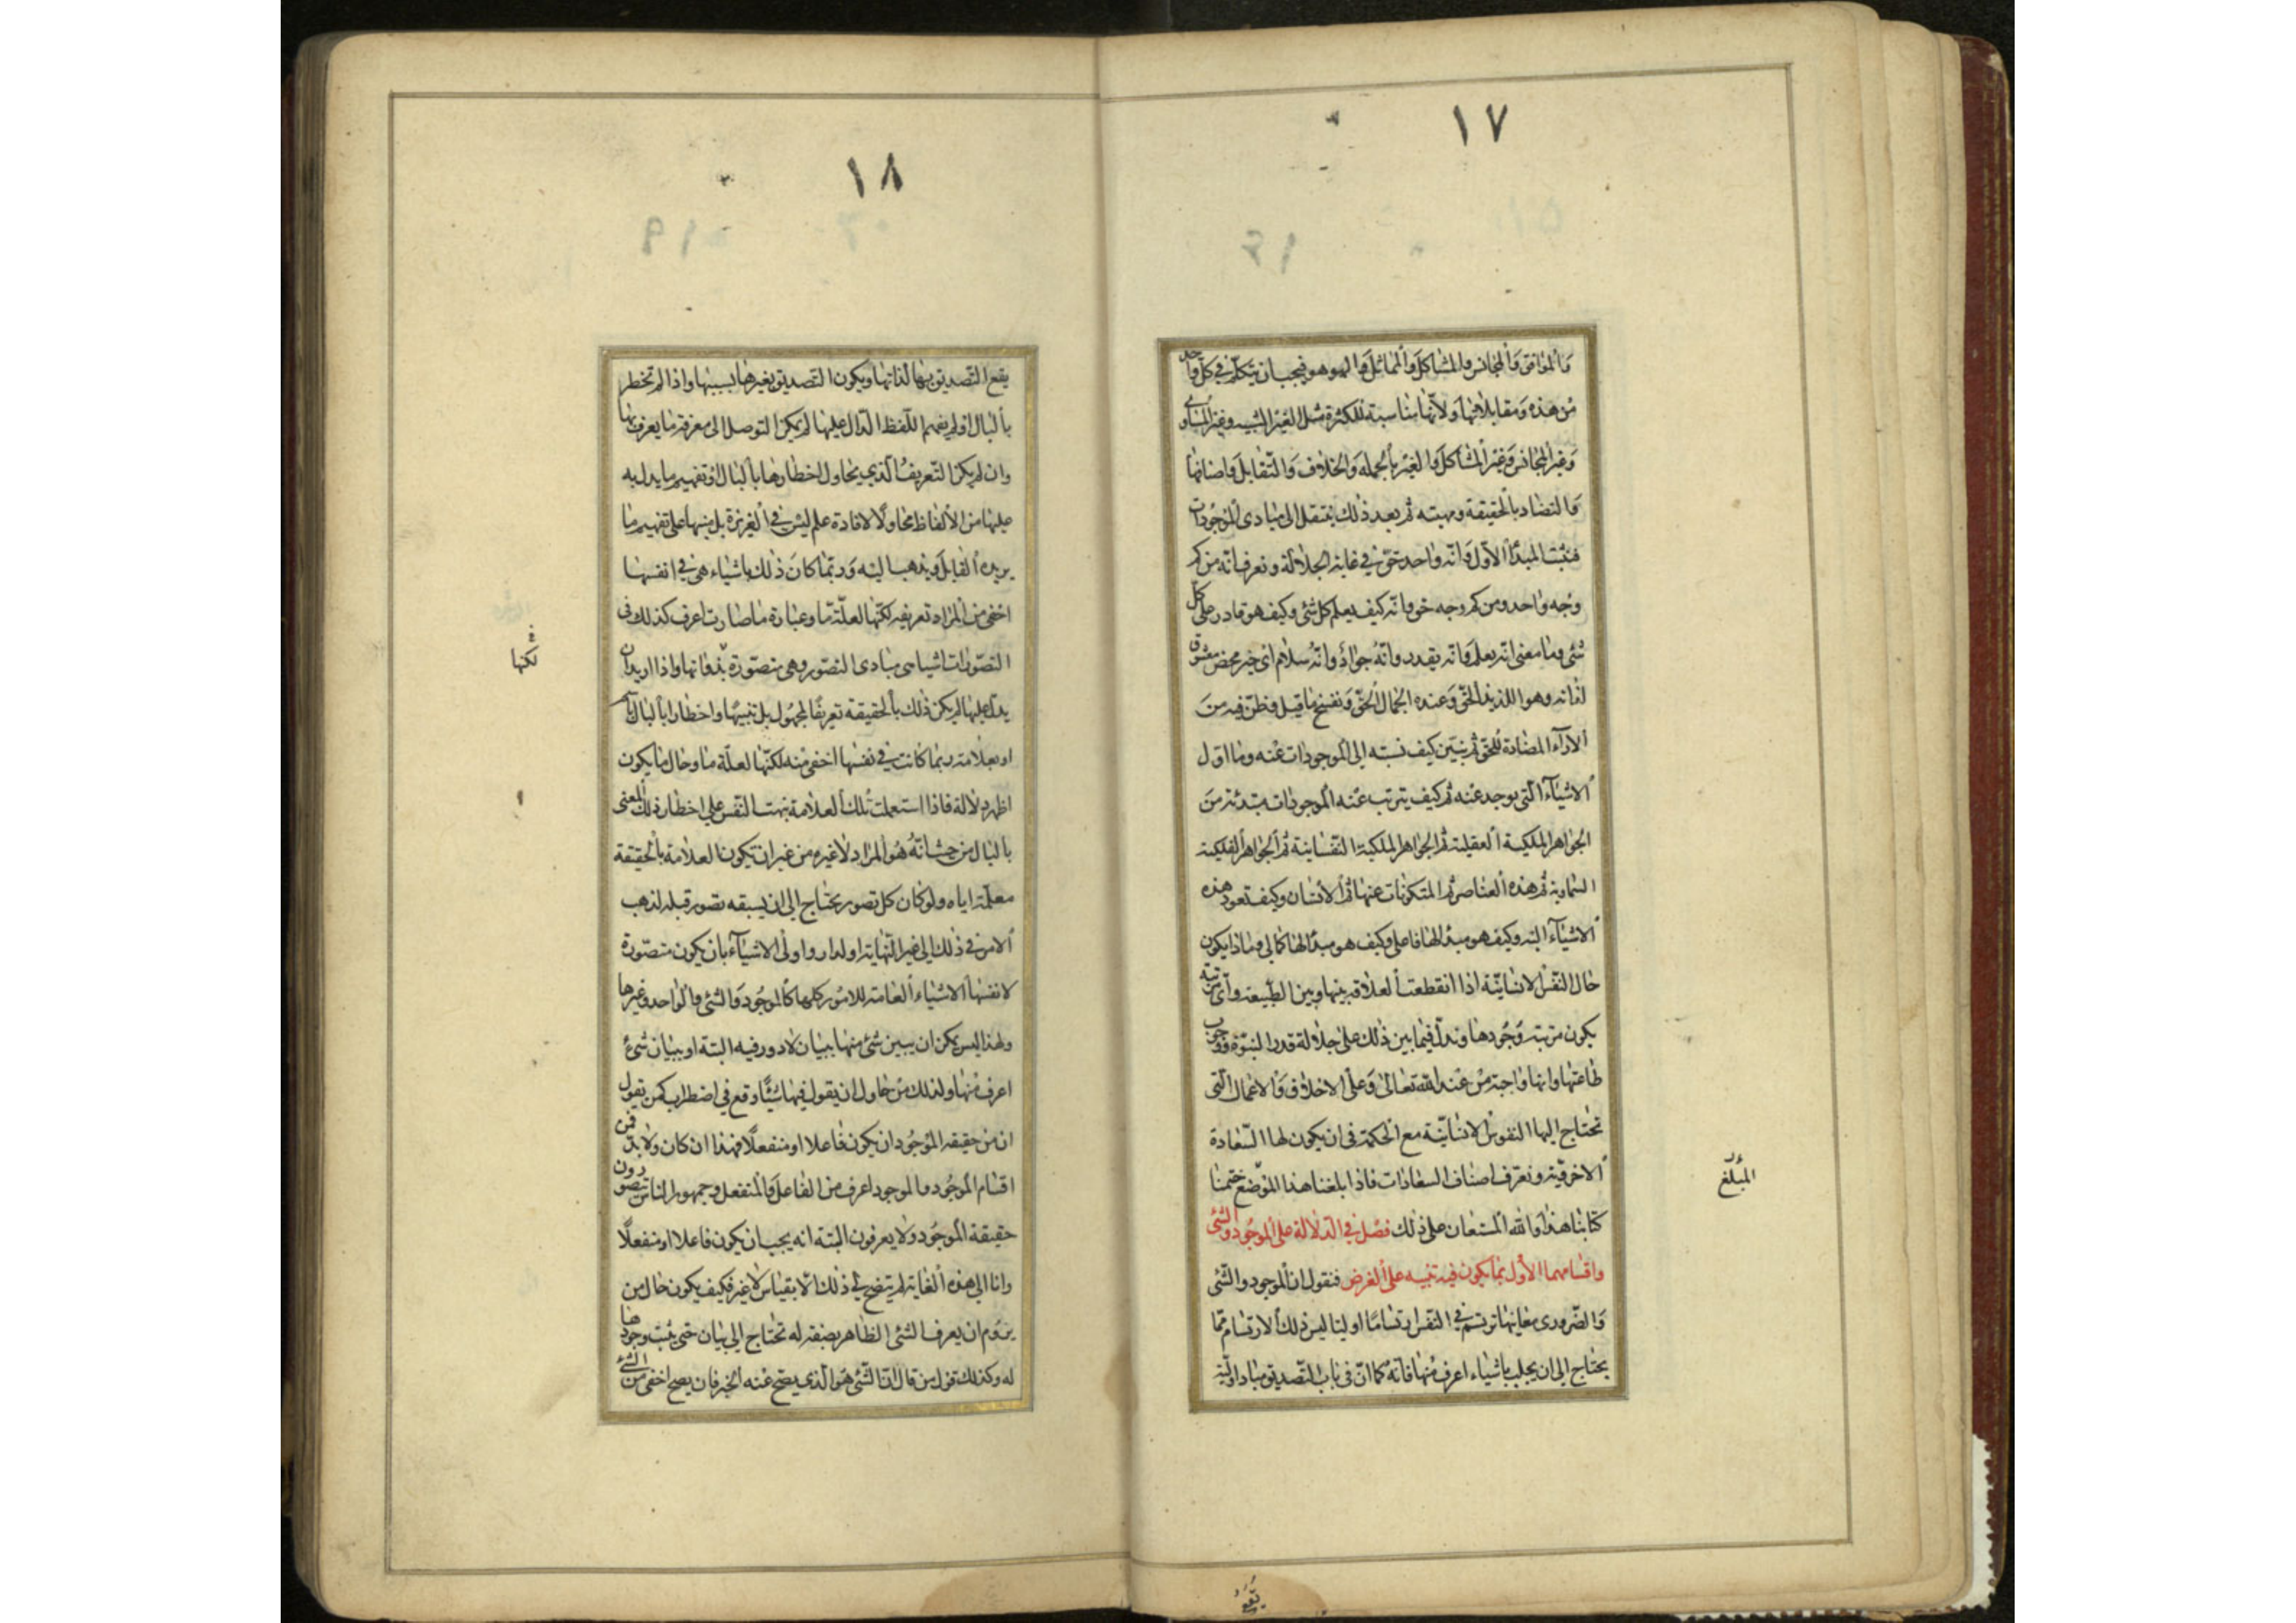 ١٧
والموافق والمجانس والمشاكل والمماثل والهو هو فيجب ان يتكلم في كل واحد
من هذه ومقابلاتها ولانها مناسبة للكثرة مثل الغير الشبيه وغير المساوي
وغير المجانس وغير المشاكل والغير بالجملة والخلاف والتقابل واصنافها
والتضاد بالحقيقة ومهيته ثم بعد ذلك ننتقل الى مبادى الموجودات
فنثبت المبدأ الاول وانه واحد حق في غاية الجلالة ونعرف انه من كم
وجه واحد ومن كم وجه حق وانه كيف يعلم كل شئ وكيف هو قادر على كل
شئ وما معنى انه يعلم وانه يقدر وانه جواد وانه سلام اى خير محض معشوق
لذاته وهو اللذيذ الحق وعنده الجمال الحق ونفسخ ما قيل وظن فيه من
الاراء المضادة للحق ثم نبين كيف نسبته الى الموجودات عنه وما اول
الاشياء التى يوجد عنه ثم كيف يترتب عنه الموجودات مبتدئة من
الجواهر الملكية العقلية ثم الجواهر الملكية النفسانية ثم الجواهر الفلكية
السماوية ثم هذه العناصر ثم المتكونات عنها ثم الانسان وكيف تعود هذه
الاشياء اليه وكيف هو مبدأ لها فاعلى وكيف هو مبدأ لها كمالى وماذا يكون
حال النفس الانسانية اذا انقطعت العلاقة بينها وبين الطبيعة واى مرتبة
يكون مرتبة وجودها وندل فيما بين ذلك على جلالة قدر النبوة ووجوب
طاعتها وانها واجبة من عند الله تعالى وعلى الاخلاق والاعمال التى
تحتاج اليها النفوس الانسانية مع الحكمة فى ان يكون لها السعادة
الاخروية ونعرف اصناف السعادات فاذا بلغنا هذا الموضع ختمنا
كتابنا هذا والله المستعان على ذلك فصل في الدلالة على الموجود والشئ
واقسامهما الاول بما يكون فيه تنبيه على الغرض فنقول ان الموجود والشئ
والضرورى معانيها ترتسم في النفس ارتساما اوليا ليس ذلك الارتسام مما
يحتاج الى ان يجلب باشياء اعرف منها فانه كما ان فى باب التصديق مبادى اولية
المبلغ
يقع
١٨
يقع التصديق بها لذاتها ويكون التصديق بغيرها بسببها واذا لم تخطر
بالبال او لم يفهم اللفظ الدال عليها لم يمكن التوصل الى معرفة ما يعرف بها
وان لم يكن التعريف الذى يحاول اخطارها بالبال او تفهيم ما يدل به
عليها من الالفاظ محاولا لافادة علم ليس في الغريزة بل منبها على تفهيم ما
يريده القايل ويذهب اليه وربما كان ذلك باشياء هى في انفسها
اخفى من المراد تعريفه لكنها لعلة ما وعبارة ما صارت اعرف كذلك فى
التصورات اشيا هى مبادى التصور وهى متصورة بذواتها واذا اريد ان
يدل عليها لم يكن ذلك بالحقيقة تعريفا لمجهول بل تنبيها واخطارا بالبال باسم
او بعلامة ربما كانت في نفسها اخفى منه لكنها لعلة ما وحال ما يكون
اظهر دلالة فاذا استعملت تلك العلامة نبهت النفس على اخطار ذلك المعنى
بالبال من حيث انه هو المراد لا غيره من غير ان يكون العلامة بالحقيقة
معلمة اياه ولو كان كل تصور يحتاج الى ان يسبقه تصور قبله لذهب
الامر في ذلك الى غير النهاية او لدار واولى الاشياء بان يكون متصورة
لانفسها الاشياء العامة للامور كلها كالموجود والشئ والواحد وغيرها
ولهذا ليس يمكن ان يبين شئ منها ببيان لا دور فيه البتة او ببيان شئ
اعرف منها ولذلك من حاول ان يقول فيها شيئا وقع في اضطراب كمن يقول
ان من حقيقة الموجود ان يكون فاعلا او منفعلا فهذا ان كان ولا بد فمن
اقسام الموجود والموجود اعرف من الفاعل والمنفعل وجمهور الناس يتصورون
حقيقة الموجود ولا يعرفون البتة انه يجب ان يكون فاعلا او منفعلا
وانا الى هذه الغاية لم يتضح لى ذلك الا بقياس لا غير فكيف يكون حال من
يروم ان يعرف الشئ الظاهر بصفة له تحتاج الى بيان حتى يثبت وجودها
له وكذلك قول من قال ان الشئ هو الذى يصح عنه الخبر فان يصح اخفى من الشئ
لكنها